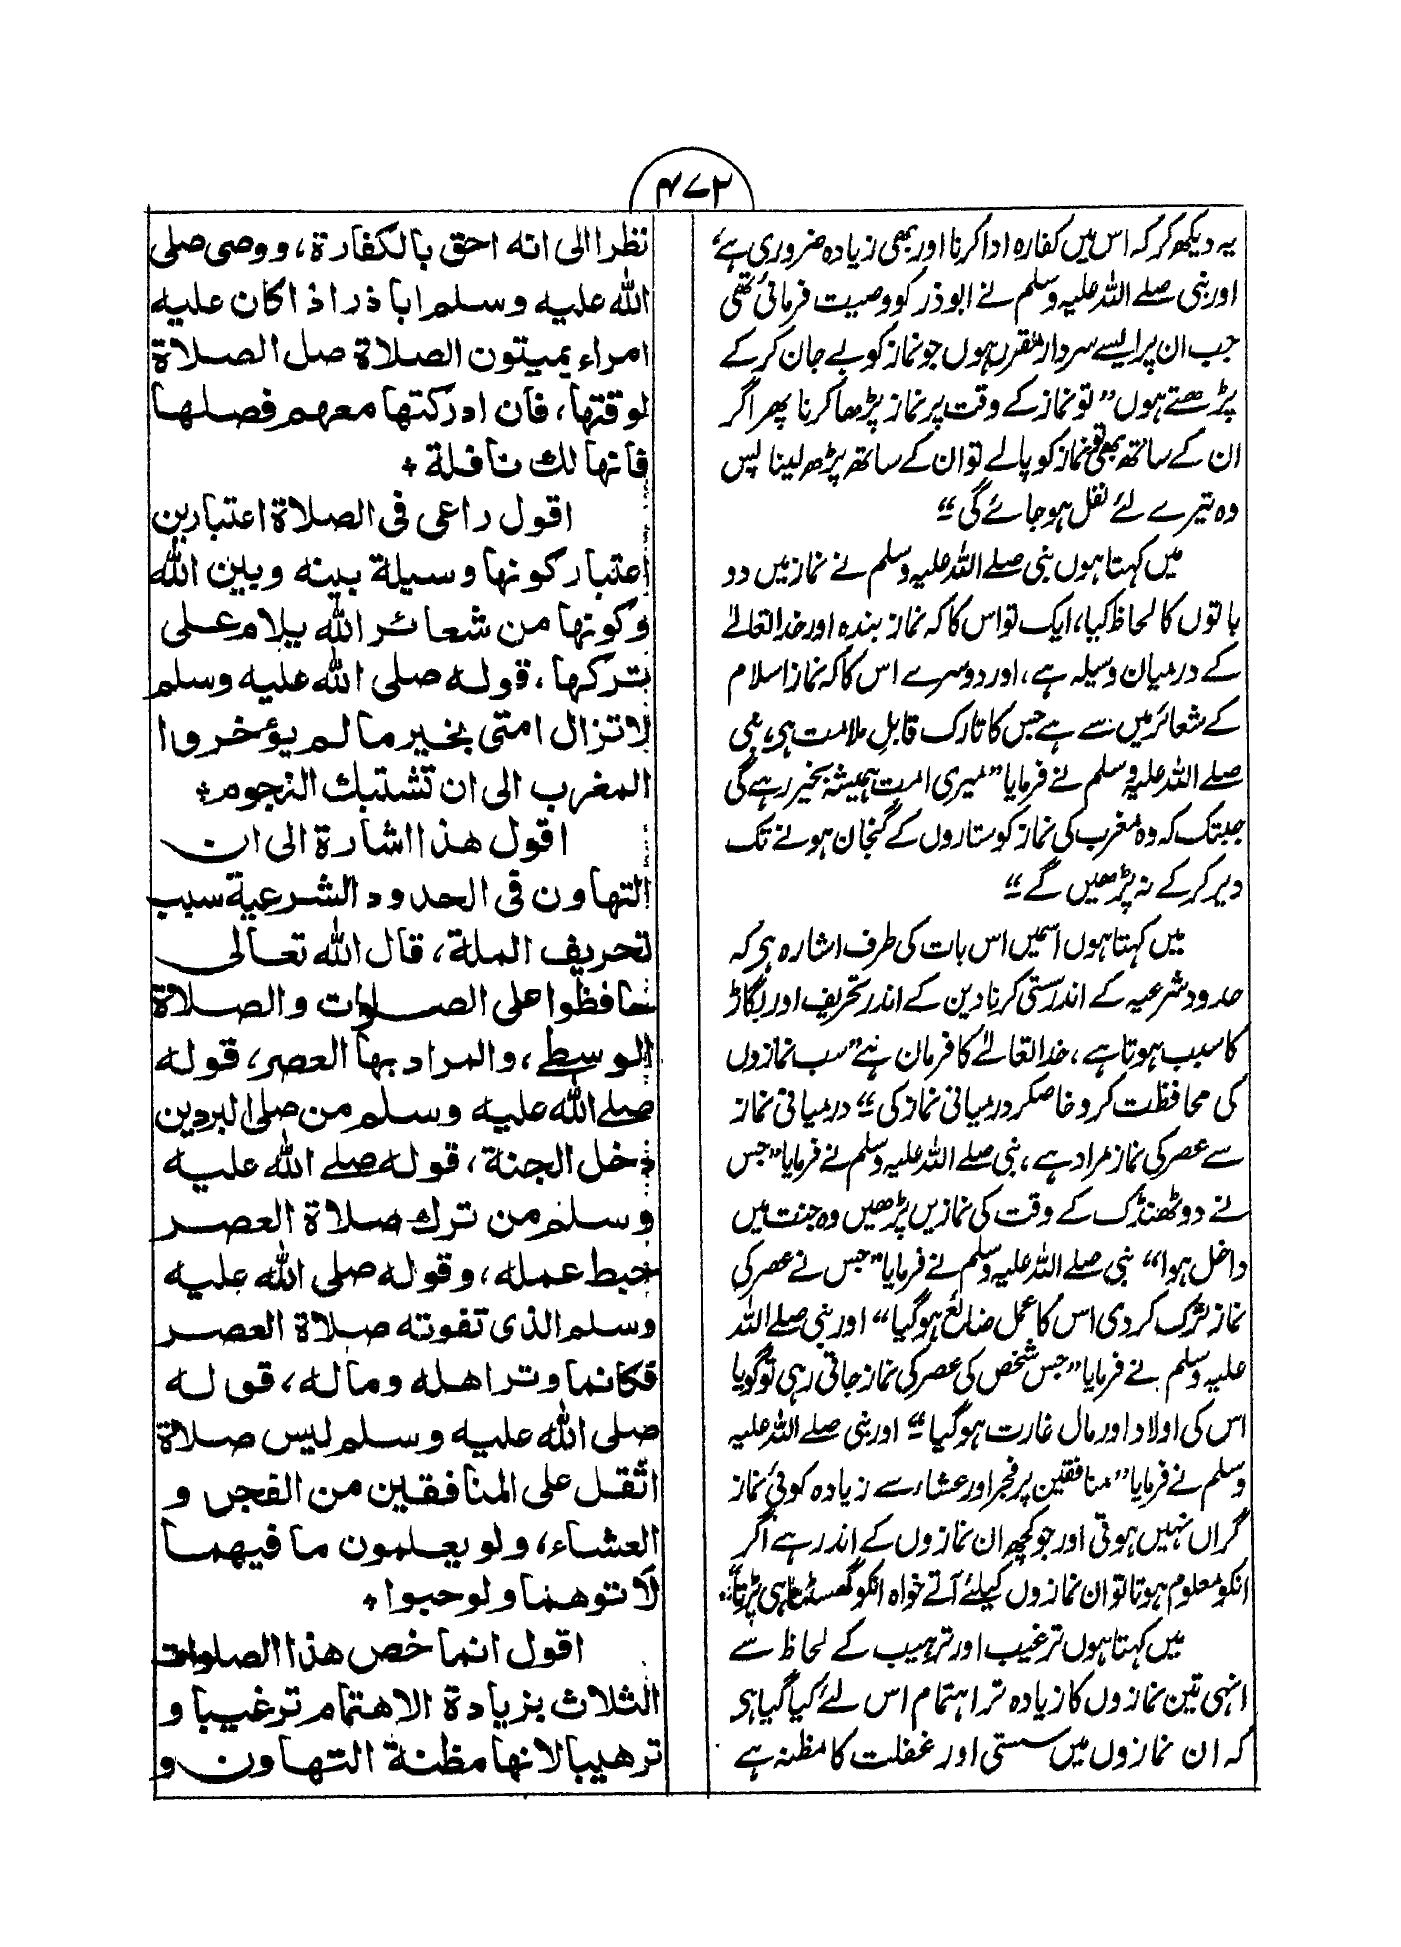 ۴۷۲
یہ دیکھ کر کہ اس میں کفارہ ادا کرنا اور بھی زیادہ ضروری ہے،
اور نبی صلے اللہ علیہ وسلم نے ابوذر کو وصیت فرمائی تھی
جب ان پر ایسے سردار مقرر ہوں جو نماز کو بے جان کر کے
پڑھتے ہوں "تو نماز کے وقت پر نماز پڑھا کرنا پھر اگر
ان کے ساتھ بھی تو نماز کو پالے تو ان کے ساتھ پڑھ لینا پس
وہ تیرے لئے نفل ہو جائے گی"
میں کہتا ہوں نبی صلے اللہ علیہ وسلم نے نماز میں دو
باتوں کا لحاظ کیا، ایک تو اس کا کہ نماز بندہ اور خدا تعالےٰ
کے درمیان وسیلہ ہے، اور دوسرے اس کا کہ نماز اسلام
کے شعائر میں سے ہے جس کا تارک قابل ملامت ہی، نبی
صلے اللہ علیہ وسلم نے فرمایا "میری امت ہمیشہ بخیر رہے گی
جبتک کہ وہ مغرب کی نماز کو ستاروں کے گنجان ہونے تک
دیر کر کے نہ پڑھیں گے"
میں کہتا ہوں اسمیں اس بات کی طرف اشارہ ہی کہ
حدود شرعیہ کے اندر سستی کرنا دین کے اندر تحریف اور بگاڑ
کا سبب ہوتا ہے، خدا تعالےٰ کا فرمان ہے "سب نمازوں
کی محافظت کرو خاصکر درمیانی نماز کی" درمیانی نماز
سے عصر کی نماز مراد ہے، نبی صلے اللہ علیہ وسلم نے فرمایا "جس
نے دو ٹھنڈک کے وقت کی نمازیں پڑھیں وہ جنت میں
داخل ہوا" نبی صلے اللہ علیہ وسلم نے فرمایا "جس نے عصر کی
نماز ترک کر دی اس کا عمل ضائع ہو گیا" اور نبی صلے اللہ
علیہ وسلم نے فرمایا "جس شخص کی عصر کی نماز جاتی رہی تو گویا
اس کی اولاد اور مال غارت ہو گیا" اور نبی صلے اللہ علیہ
وسلم نے فرمایا "منافقین پر فجر اور عشاء سے زیادہ کوئی نماز
گراں نہیں ہوتی اور جو کچھ ان نمازوں کے اندر ہے اگر
انکو معلوم ہوتا تو ان نمازوں کیلئے آتے خواہ انکو گھسٹنا ہی پڑتا"
میں کہتا ہوں ترغیب اور ترہیب کے لحاظ سے
انہی تین نمازوں کا زیادہ تر اہتمام اس لئے کیا گیا ہی
کہ ان نمازوں میں سستی اور غفلت کا مظنہ ہے
نظرا الى انه احق بالكفارة، ووصى صلى
الله عليه وسلم ابا ذر اذا كان عليه
امراء يميتون الصلاة صل الصلاة
لوقتها، فان ادركتها معهم فصلها
فانها لك نافلة +
اقول راعى فى الصلاة اعتبارين
اعتبار كونها وسيلة بينه وبين الله
وكونها من شعائر الله يلام على
بتركها، قوله صلى الله عليه وسلم
لا تزال امتى بخير ما لم يؤخروا
المغرب الى ان تشتبك النجوم +
اقول هذا اشارة الى ان
التهاون فى الحدود الشرعية سبب
تحريف الملة، قال الله تعالى
حافظوا على الصلوات والصلاة
الوسطى، والمراد بها العصر، قوله
صلے الله عليه وسلم من صلى البردين
دخل الجنة، قوله صلے الله عليه
وسلم من ترك صلاة العصر
حبط عمله، وقوله صلى الله عليه
وسلم الذى تفوته صلاة العصر
فكانما وتر اهله وماله، قوله
صلى الله عليه وسلم ليس صلاة
اثقل على المنافقين من الفجر و
العشاء، ولو يعلمون ما فيهما
لاتوهما ولو حبوا +
اقول انما خص هذا الصلوات
الثلاث بزيادة الاهتمام ترغيبا و
ترهيبا لانها مظنة التهاون و